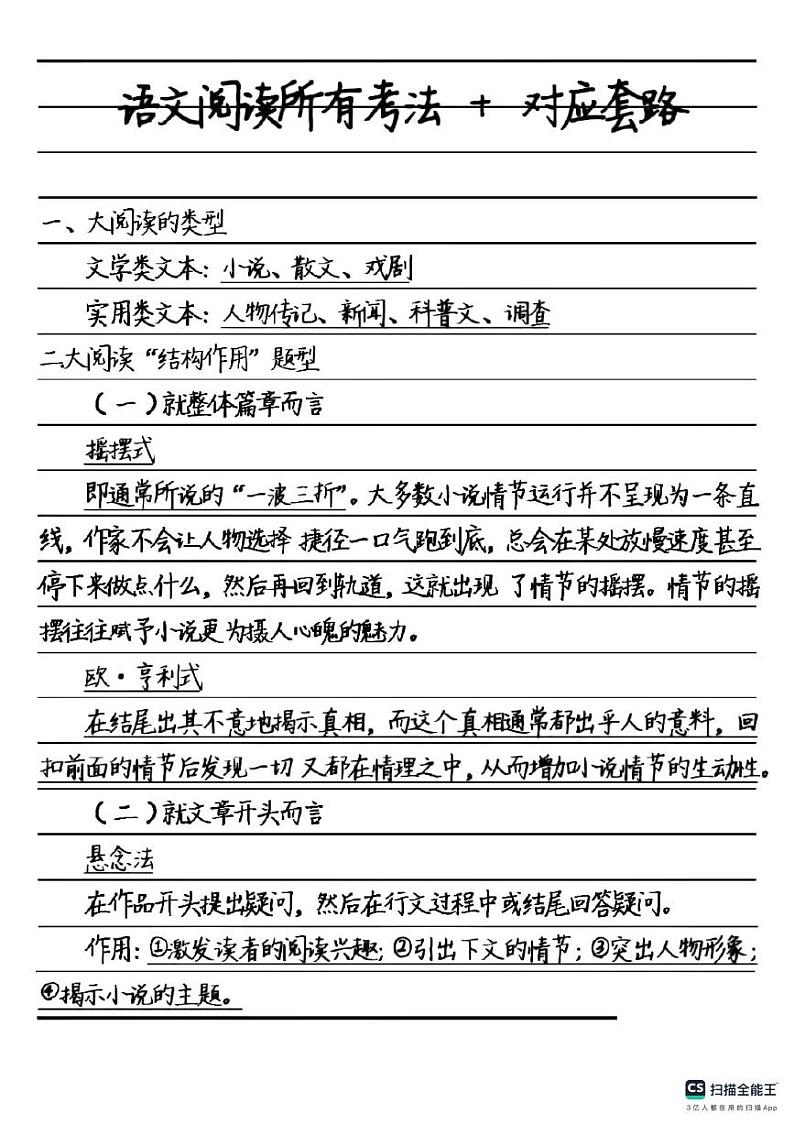 语文阅读所有考法 + 对应套路
一、大阅读的类型
文学类文本：小说、散文、戏剧
实用类文本：人物传记、新闻、科普文、调查
二大阅读“结构作用”题型
（一）就整体篇章而言
摇摆式
即通常所说的“一波三折”。大多数小说情节运行并不呈现为一条直
线，作家不会让人物选择 捷径一口气跑到底，总会在某处放慢速度甚至
停下来做点什么，然后再回到轨道，这就出现 了情节的摇摆。情节的摇
摆往往赋予小说更为摄人心魄的魅力。
欧·亨利式
在结尾出其不意地揭示真相，而这个真相通常都出乎人的意料，回
扣前面的情节后发现一切 又都在情理之中，从而增加小说情节的生动性。
（二）就文章开头而言
悬念法
在作品开头提出疑问，然后在行文过程中或结尾回答疑问。
作用：①激发读者的阅读兴趣；②引出下文的情节；③突出人物形象；
④揭示小说的主题。
CS 扫描全能王
3亿人都在用的扫描App